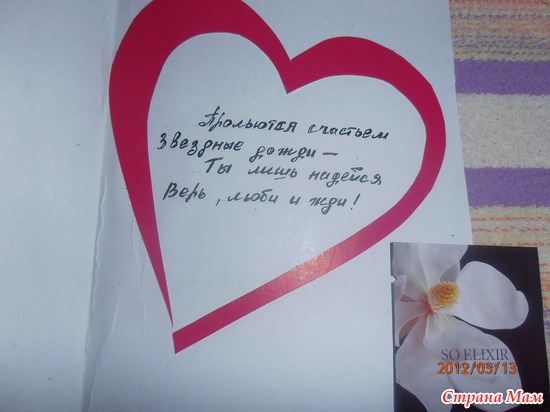 Прольются счастьем
звездные дожди —
Ты лишь надейся
Верь, люби и жди!
SO ELIXIR
2012/03/13
Страна Мам